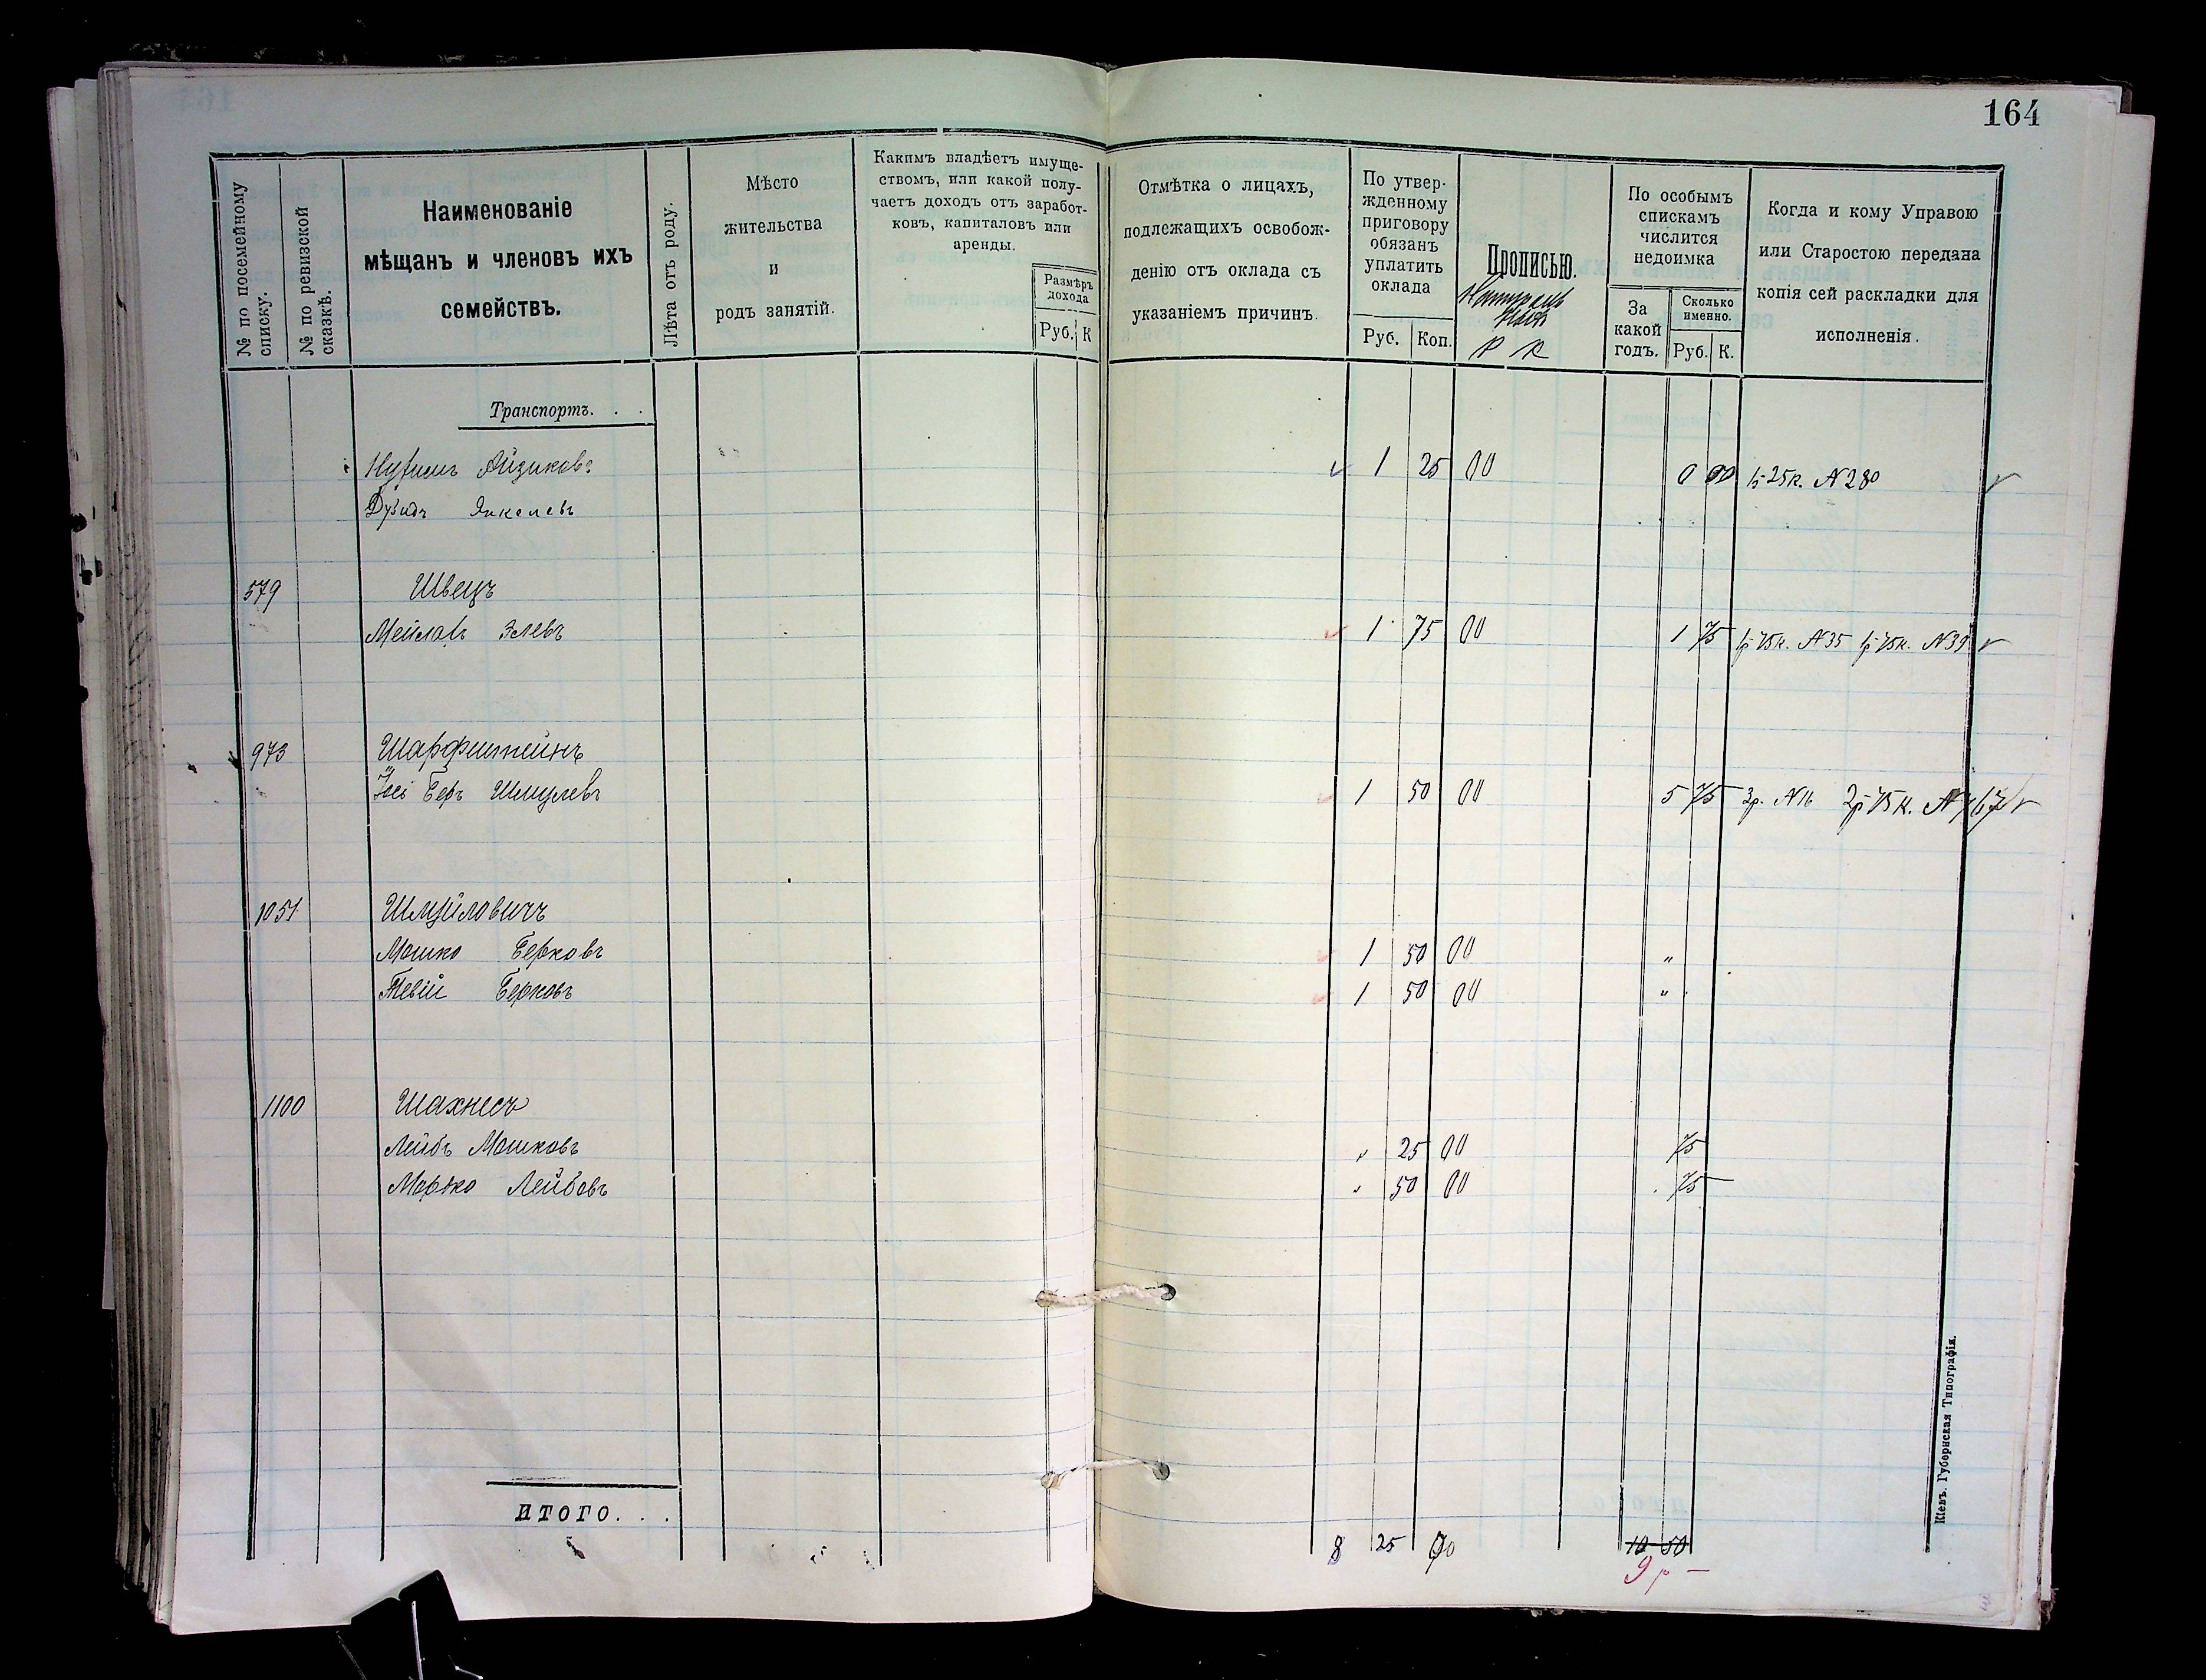 164
№ по посемейному списку.
№ по ревизской сказкѣ.
Наименованіе
мѣщанъ и членовъ ихъ
семействъ.
Лѣта отъ роду.
Мѣсто
жительства
и
родъ занятій.
Какимъ владѣетъ имуще-
ствомъ, или какой полу-
чаетъ доходъ отъ заработ-
ковъ, капиталовъ или
аренды.
Размѣръ
дохода
Руб. К
Отмѣтка о лицахъ,
подлежащихъ освобож-
денію отъ оклада съ
указаніемъ причинъ.
По утвер-
жденному
приговору
обязанъ
уплатить
оклада
Руб. Коп.
Прописью.
Р К
По особымъ
спискамъ
числится
недоимка
За
какой
годъ.
Сколько
именно.
Руб. К.
Когда и кому Управою
или Старостою передана
копія сей раскладки для
исполненія.
Транспортъ. . .
Нухимъ Айзиковъ 1 25 00 0 00 1р 25к. №280
Дувидъ Янкелевъ
579 Швецъ
Мейлахъ Элевъ 1 75 00 1 75 1р 75к. №35 1р 75к. №39
973 Шарфштейнъ
Іосі Беръ Шмулевъ 1 50 00 5 75 3р. №16 2р 75к. №767
1051 Шмуйловичъ
Мошко Берковъ 1 50 00 "
Тевій Берковъ 1 50 00 "
1100 Шахнесъ
Лейбъ Мошковъ " 25 00 75
Мордко Лейбовъ " 50 00 75
ИТОГО. . .
8 25 00 10 50
9р –
Кіевъ. Губернская Типографія.